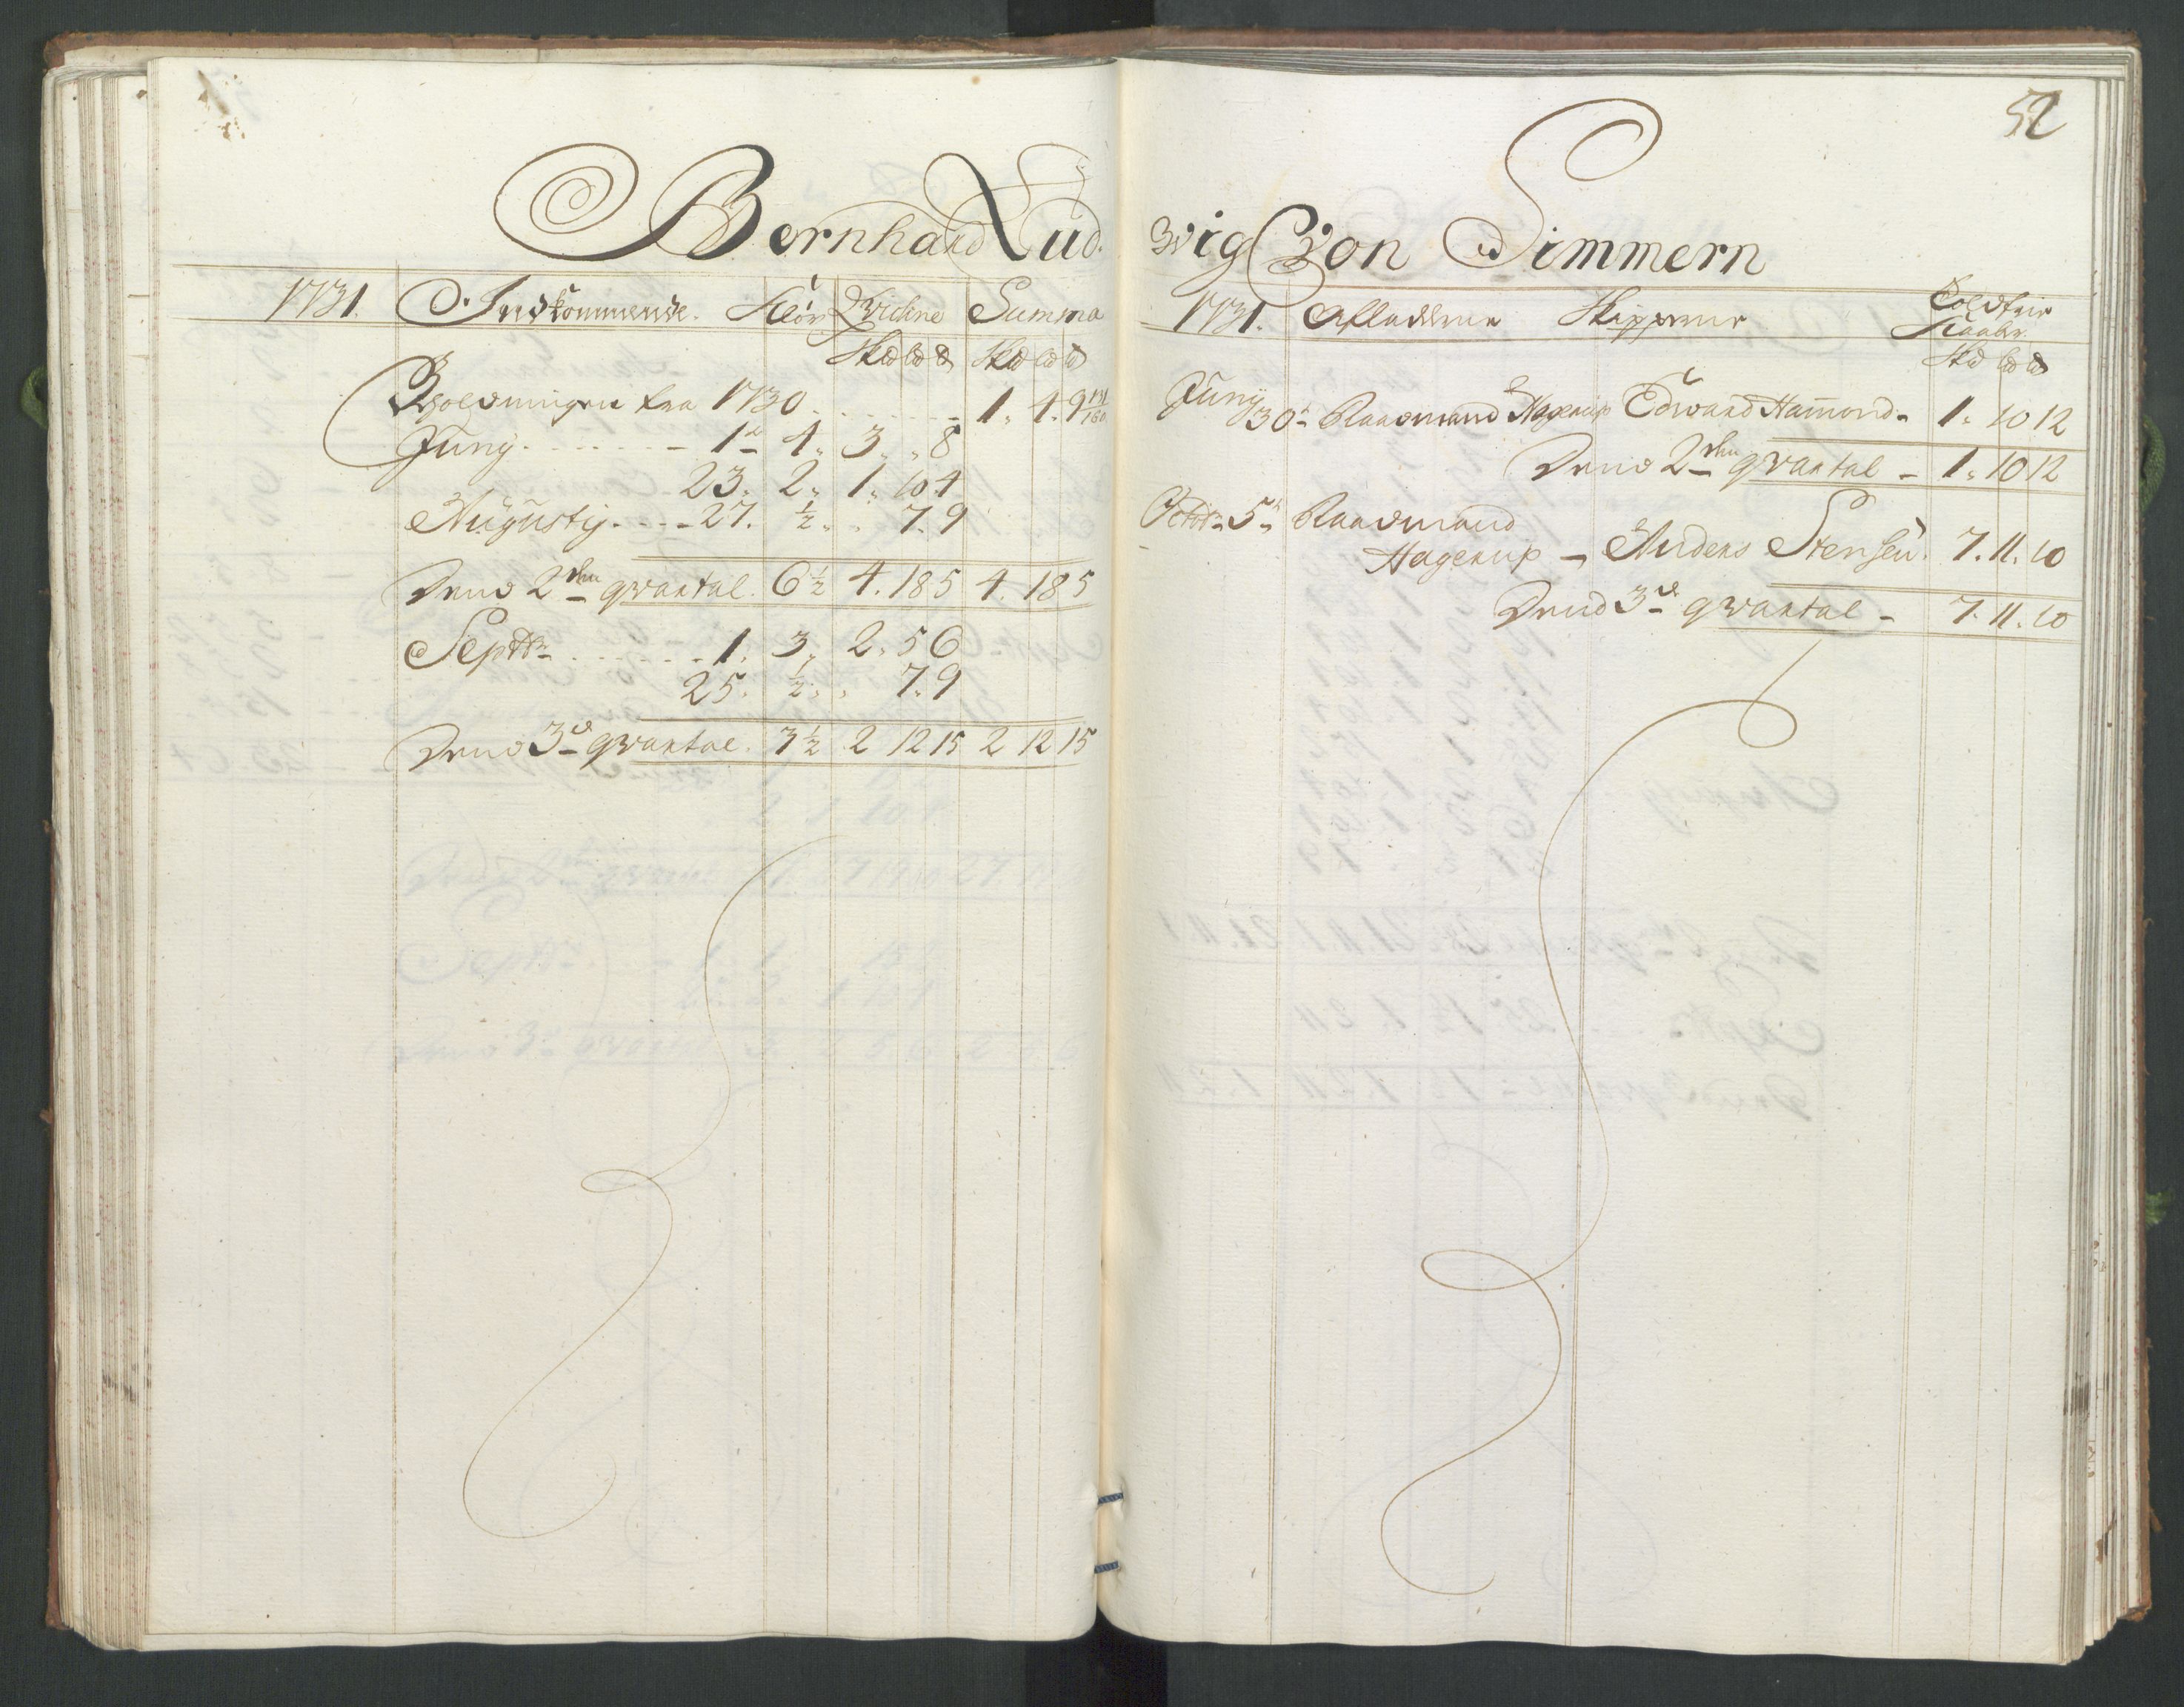 52
Bernhard Ludvig von Simmern
1731. Indkommende. Kiör Qvickne Summa
Skd Ld ld Skd Ld ld
Beholdningen fra 1730 . . . . . . 1. 4. 9 131/160
Juny . . . . . . 1te 4. 3. „ 8
23. 2. 1. 10 4
Augusty . . . . 27. ½. „ 7. 9
Dend 2den qvartal. 6½ 4. 18 5 4. 18 5
Septbr . . . . . . 1. 3. 2. 5 6
25. ½. „ 7. 9
Dend 3de qvartal. 3½ 2 12 15 2 12 15
1731. Afladere Skippere Toldfrie Kaaber.
Skd Ld ld
Juny 30te Raadmand Hagerup Edward Hamond 1. 10 12
Dend 2den qvartal 1. 10 12
Octobr 5te Raadmand
Hagerup Anders Stensen. 7. 11. 10
Dend 3de qvartal 7. 11. 10